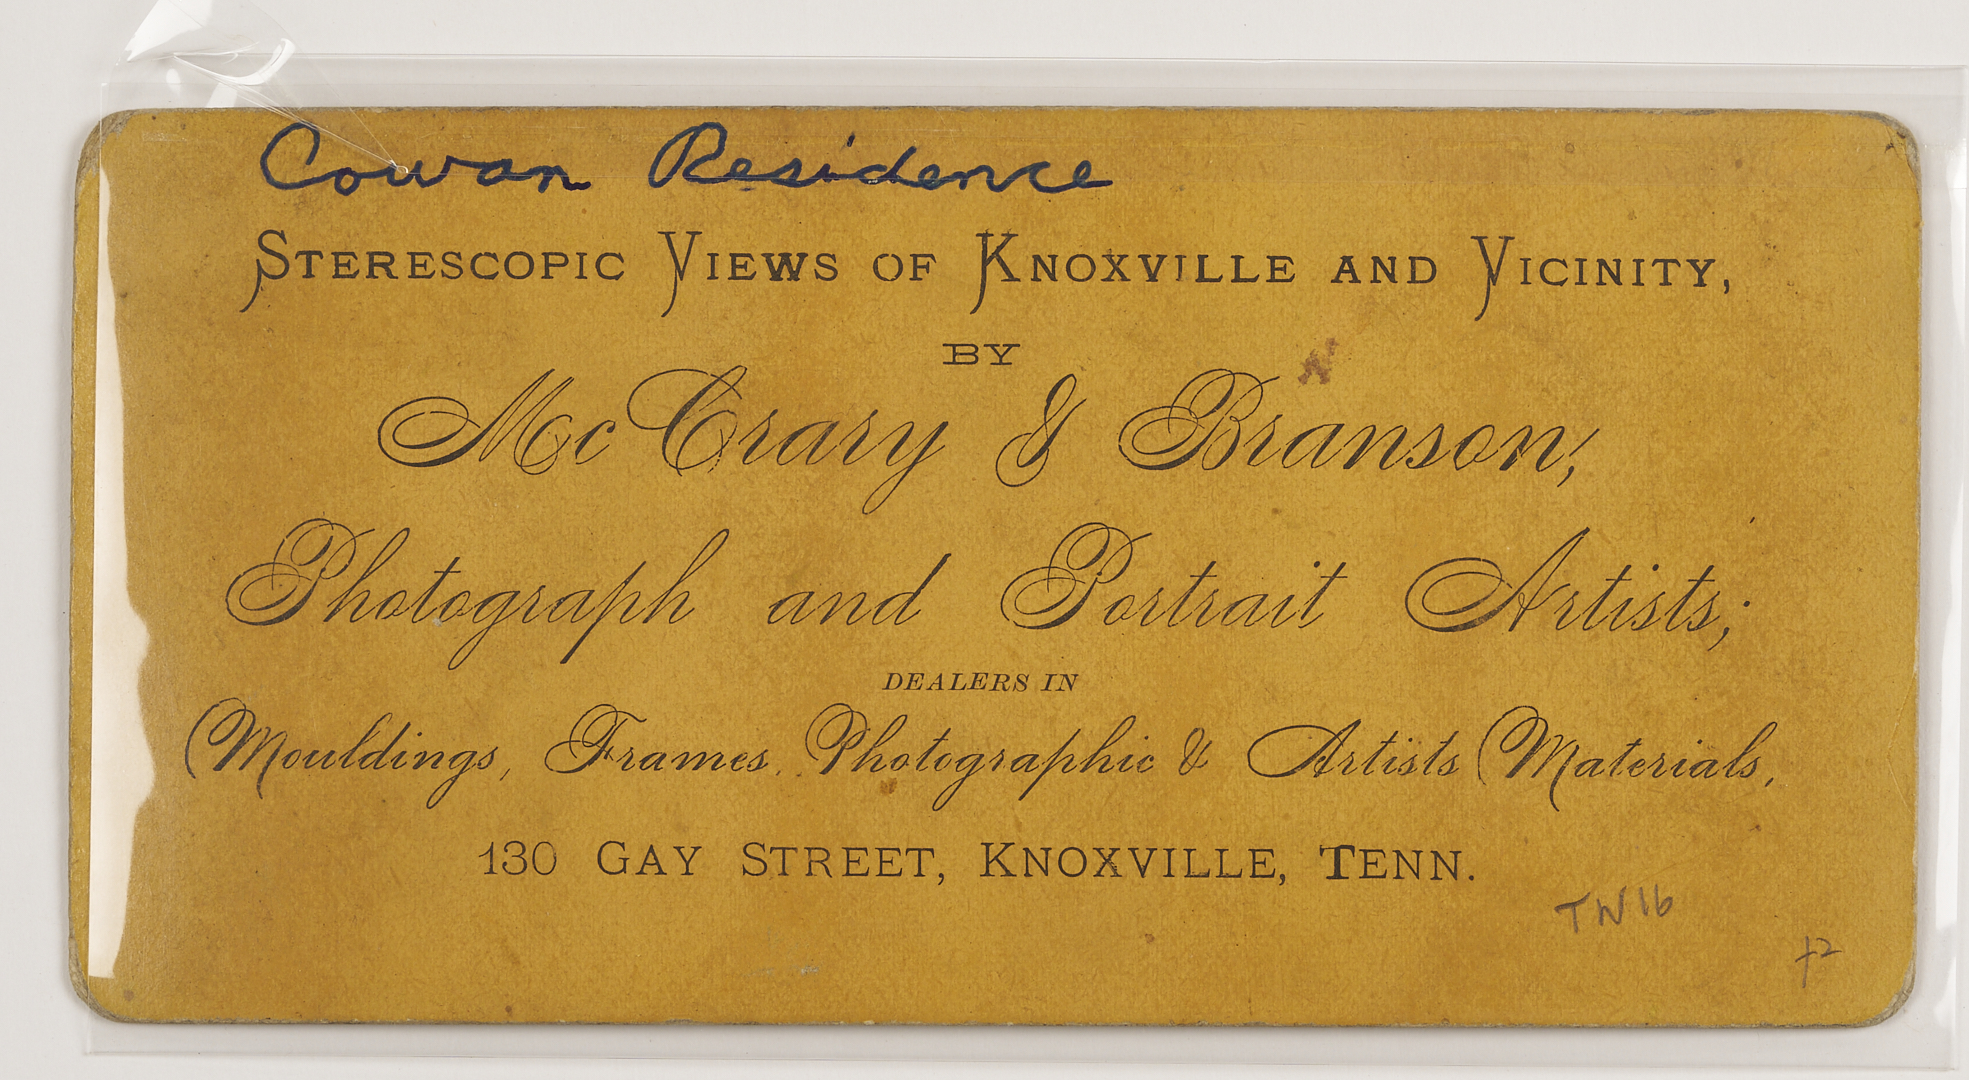 Cowan Residence
STERESCOPIC VIEWS OF KNOXVILLE AND VICINITY,
BY
McCrary & Branson,
Photograph and Portrait Artists;
DEALERS IN
Mouldings, Frames, Photographic & Artists Materials,
130 GAY STREET, KNOXVILLE, TENN.
TW16